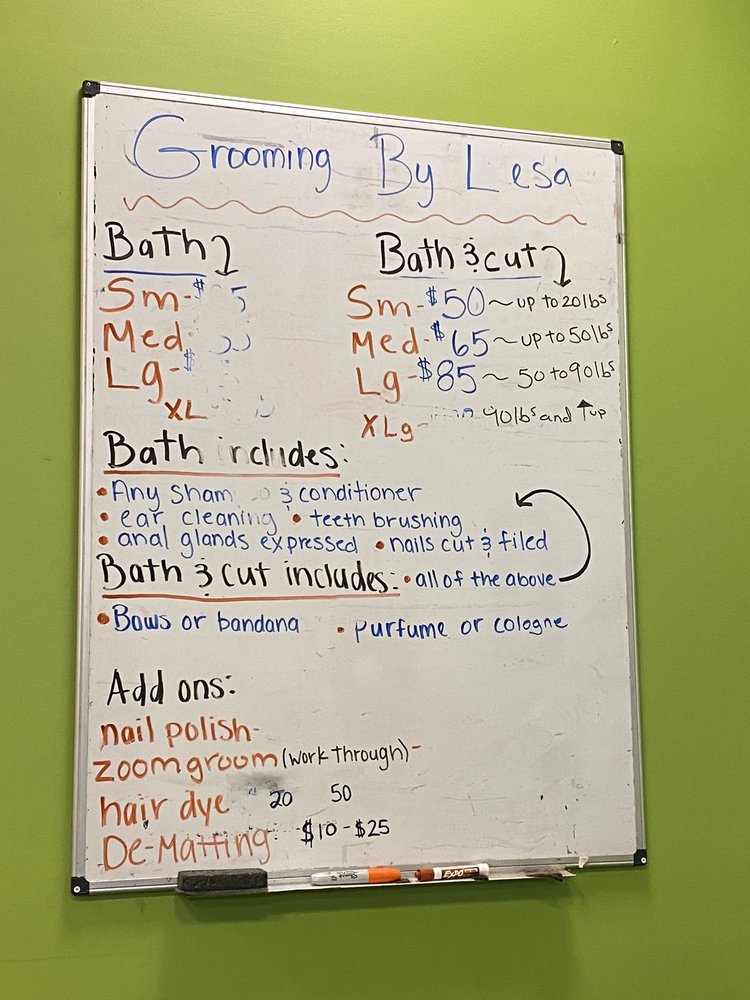 Grooming By Lesa
Bath
Sm- $ 5
Med
Lg- $
XL
Bath & cut
Sm- $50 ~ up to 20 lbs
Med- $65 ~ up to 50 lbs
Lg- $85 ~ 50 to 90 lbs
XLg- 90 lbs and up
Bath includes:
• Any sham & conditioner
• ear cleaning • teeth brushing
• anal glands expressed • nails cut & filed
Bath & cut includes: • all of the above
• Bows or bandana • purfume or cologne
Add ons:
nail polish-
zoomgroom (work through) -
hair dye 20 50
De-Matting $10 - $25
EXPO